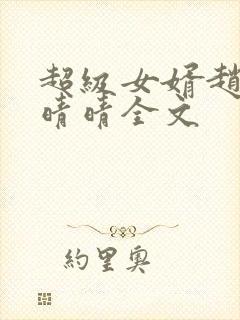 超級女婿趙
晴晴全文
約里奧